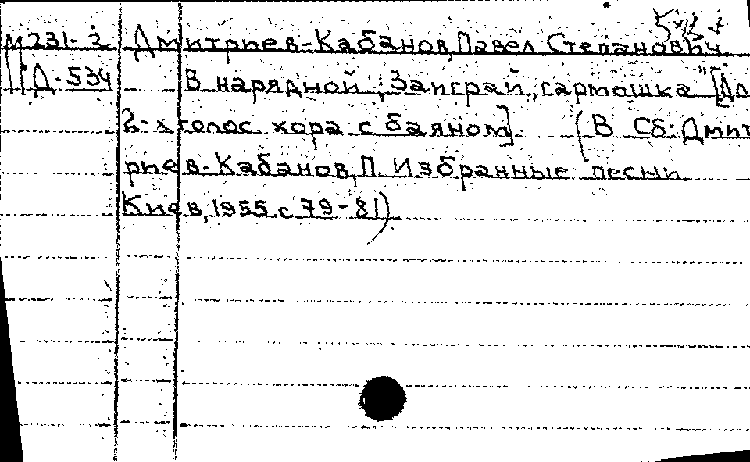 М231-2 Дмитриев-Кабанов, Павел Степанович
Д-534 В нарядной „Заиграй, гармошка" [Дл
2-х голос хора с баяном]. (В сб: Дмит
риев-Кабанов, П. Избранные песни.
Киев, 1955. с 79-81)